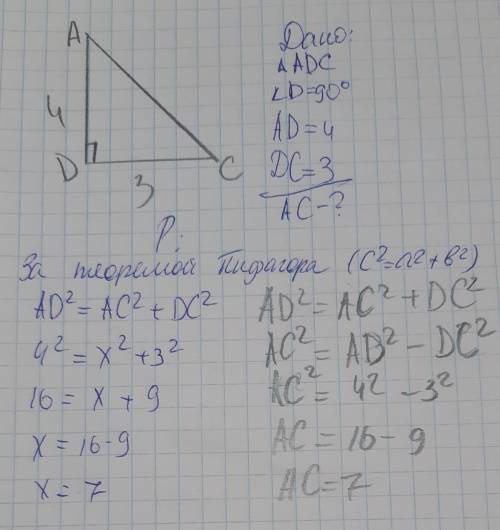 A
4
D
3
C
Дано:
△ADC
∠D=90°
AD=4
DC=3
AC-?
Р.
За теоремой Пифагора (C²=a²+b²)
AD²=AC²+DC²
4²=x²+3²
16=x+9
x=16-9
x=7
AD²=AC²+DC²
AC²=AD²-DC²
AC²=4²-3²
AC=16-9
AC=7